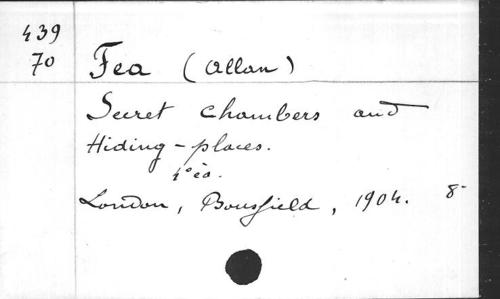 439
70
Fea (Allan)
Secret Chambers and
Hiding-places.
4° éd.
London, Bousfield, 1904. 8-